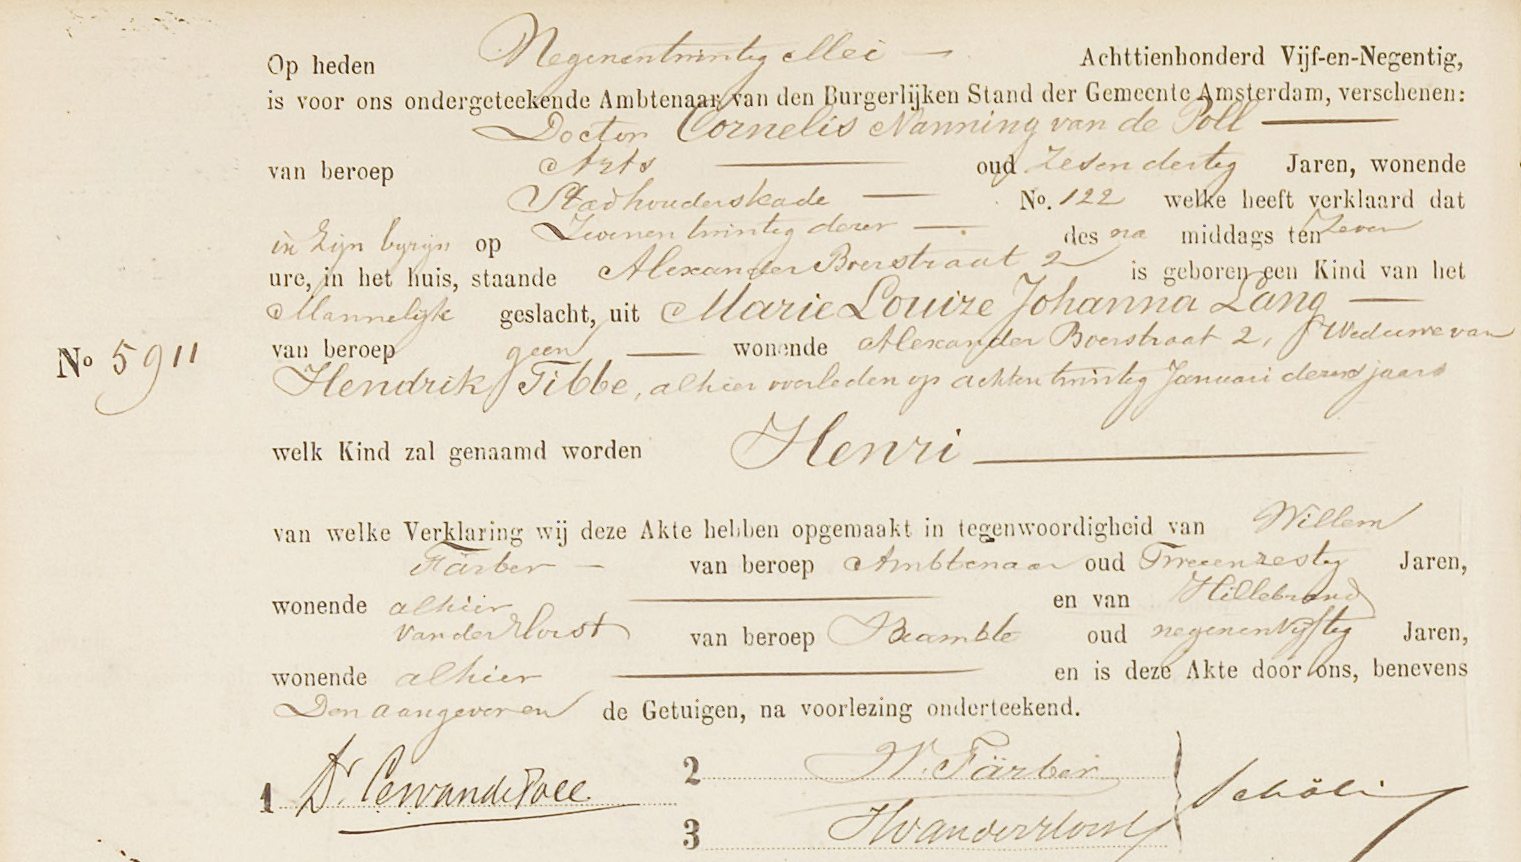 Op heden Negenentwintig Mei Achttienhonderd Vijf-en-Negentig,
is voor ons ondergeteekende Ambtenaar van den Burgerlijken Stand der Gemeente Amsterdam, verschenen:
Doctor Cornelis Nanning van de Poll
van beroep Arts oud zesendertig Jaren, wonende
Stadhouderskade No. 122 welke heeft verklaard dat
in zijn bijzijn op Zevenentwintig dezer des na middags ten Zeven
ure, in het huis, staande Alexander Boerstraat 2 is geboren een Kind van het
Mannelijk geslacht, uit Marie Louize Johanna Lang
van beroep geen wonende Alexander Boerstraat 2, Weduwe van
No 5911
Hendrik Tibbe, alhier overleden op achtentwintig Januari dezes jaars
welk Kind zal genaamd worden Henri
van welke Verklaring wij deze Akte hebben opgemaakt in tegenwoordigheid van Willem
Färber van beroep Ambtenaar oud Tweeenzestig Jaren,
wonende alhier en van Hillebrand
van der Horst van beroep Beambte oud negenenvijftig Jaren,
wonende alhier en is deze Akte door ons, benevens
Den aangever en de Getuigen, na voorlezing onderteekend.
1 Dr. C N van de Poll 2 W. Färber
3 H van der Horst